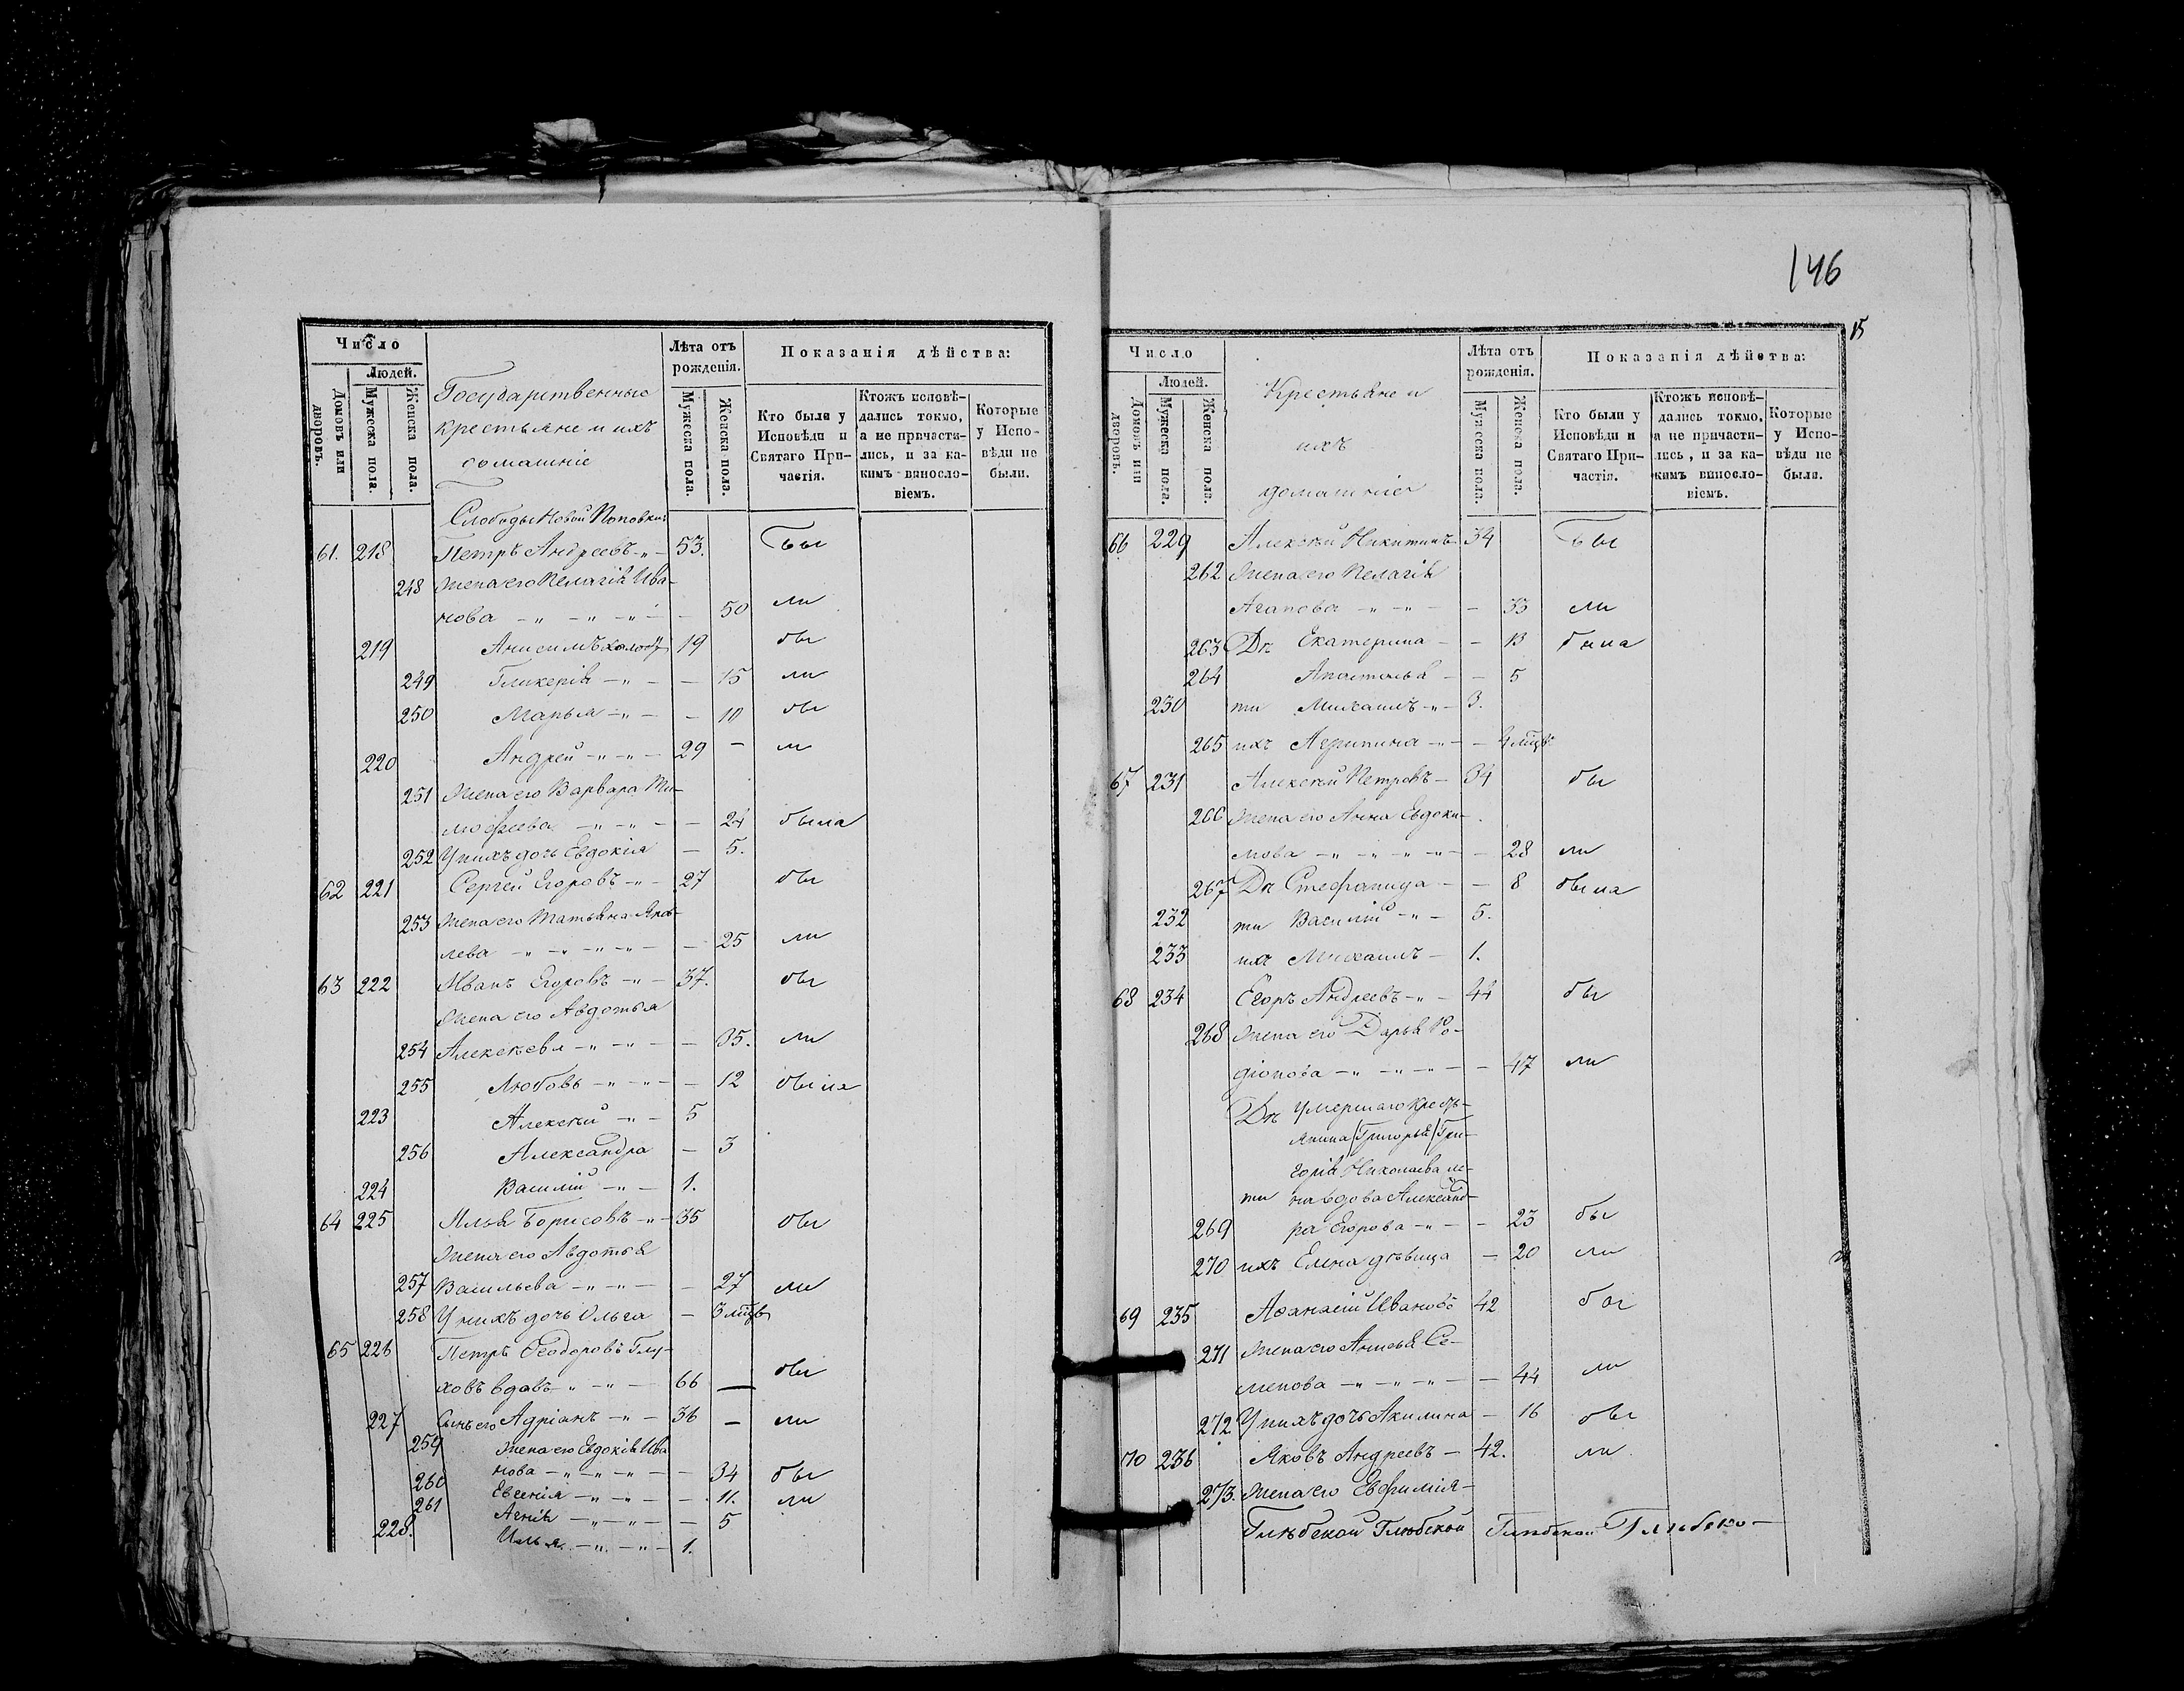 146
15
Число
Людей.
Домовъ или дворовъ.
Мужеска пола.
Женска пола.
Государственные
крестьяне и ихъ
домашніе
Лѣта отъ рожденія.
Мужеска пола.
Женска пола.
Показанія дѣйства:
Кто были у Исповѣди и Святаго Причастія.
Ктожъ исповѣдались токмо, а не причастились, и за какимъ винословіемъ.
Которые у Исповѣди не были.
Слободы Новой Поповки:
61. 218 Петръ Андреевъ -"- 53. Бы
248 Жена его Пелагія Ива-
нова -"- -"- -"- - 50 ли
219 Анисимъ холост 19 бы
249 Гликерія -"- - 15 ли
250 Марья -"- - 10 бы
220 Андрей -"- -"- 29 - ли
251 Жена его Варвара Ти-
мофеева -"- -"- - 24 была
252 У нихъ дочь Евдокія - 5.
62 221 Сергей Егоровъ -"- 27 бы
253 Жена его Татьяна Яков-
лева -"- -"- -"- - 25 ли
63 222 Иванъ Егоровъ -"- 37. бы
Жена его Авдотья
254 Алексѣева -"- -"- - 35. ли
255 Любовь -"- -"- - 12 была
223 Алексѣй -"- 5
256 Александра - 3
224 Василій -"- 1.
64 225 Илья Борисовъ -"- 35 бы
Жена его Авдотья
257 Васильева -"- -"- - 27 ли
258 У нихъ дочь Ольга - 3 мцв
65 226 Петръ Ѳеодоровъ Глу-
ховъ вдовъ -"- -"- 66 — бы
227 Сынъ его Адріанъ -"- 36 - ли
259 Жена его Евдокія Ива
нова -"- -"- -"- - 34 бы
260 Евгенія -"- -"- - 11. ли
261 Агнія -"- -"- - 5
228. Илья -"- -"- 1.
Число
Людей.
Домовъ или дворовъ.
Мужеска пола.
Женска пола.
Крестьяне и
ихъ
домашніе
Лѣта отъ рожденія.
Мужеска пола.
Женска пола.
Показанія дѣйства:
Кто были у Исповѣди и Святаго Причастія.
Ктожъ исповѣдались токмо, а не причастились, и за какимъ винословіемъ.
Которые у Исповѣди не были.
66 229 Алексѣй Никитинъ 34 Бы
262 Жена его Пелагія
Агапова -"- -"- - 33 ли
263 Дѣ Екатерина - - 13 была
264 Анастасья - - 5
230 ти Михаилъ -"- 3.
265 ихъ Агрипина -"- - 4 мцв
67 231 Алексѣй Петровъ - 34 бы
266 Жена его Анна Евдоки-
мова -"- -"- -"- - 28 ли
267 Дѣ Стефанида - - 8 была
232 ти Василій -"- 5.
233 ихъ Михаилъ - 1.
68 234 Егоръ Андреевъ -"- 44 бы
268 Жена его Дарья Ро-
діонова -"- -"- -"- - 47 ли
Дѣ Умершаго кресть-
янина (Григорья) Гри-
горія Николаева же-
ти на вдова Александ-
269 ра Егорова -"- - 23 бы
270 ихъ Елена дѣвица - 20 ли
69 235 Аѳанасій Ивановъ 42 бы
271 Жена его Анисья Се-
менова -"- -"- -"- - 44 ли
272 У нихъ дочь Акилина - 16 бы
70 236 Яковъ Андреевъ - 42. ли
273. Жена его Евфимія -
Глѣбской Глѣбской Глѣбской Глѣбско-